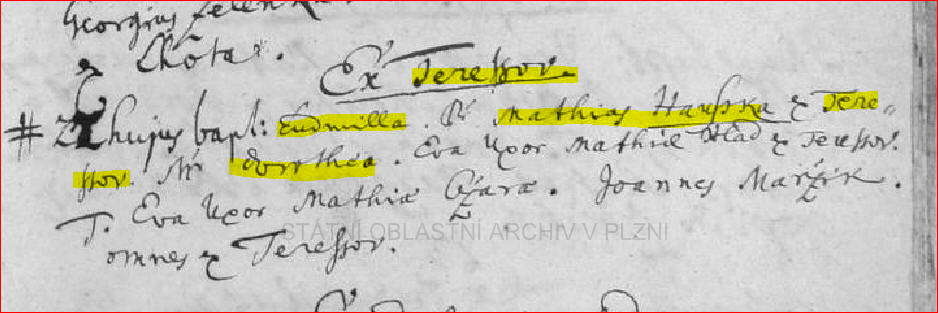 Georgius Zelenka
Lhota.
Ex Teressov.
# 21 hujus bapt: Ludmilla. P. Mathias Hausska ex Tere-
ssov. M. Dorothea. Eva Uxor Mathiæ Hlad ex Teressov.
T. Eva Uxor Mathiæ Cžara. Joannes Maržik.
omnes ex Teressov.
STÁTNÍ OBLASTNÍ ARCHIV V PLZNI